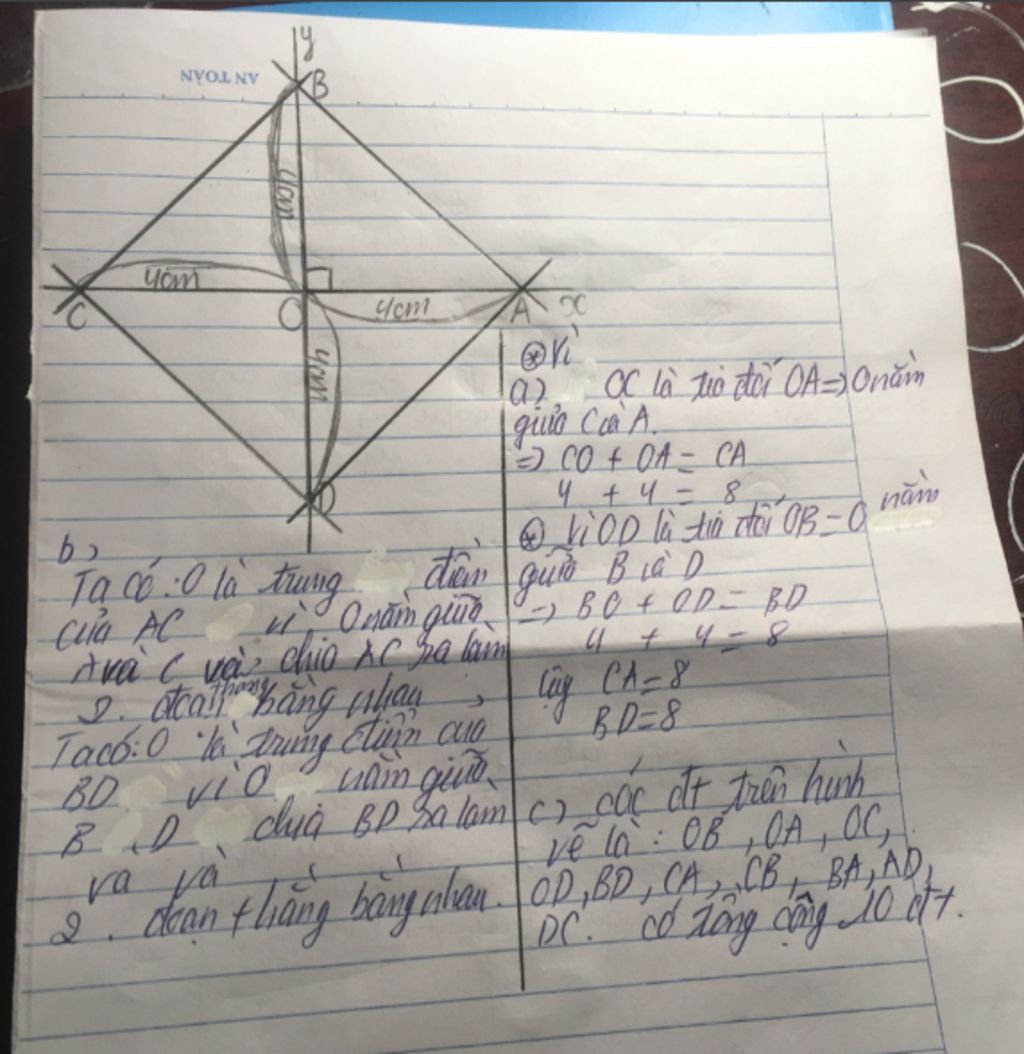 AN TOÀN
y
B
4cm
4cm
C
O
4cm
A
x
4cm
D
⊛ Vì
a) OC là tia đối OA => O nằm
giữa C và A.
=> CO + OA = CA
4 + 4 = 8
⊛ Vì OD là tia đối OB = O nằm
giữa B và D
=> BO + OD = BD
4 + 4 = 8
Vậy CA = 8
BD = 8
b)
Ta có: O là trung điểm
của AC vì O nằm giữa
A và C và chia AC ra làm
2. đoạn thẳng bằng nhau
Ta có: O là trung điểm của
BD vì O nằm giữa
B D chia BD ra làm
và và
2. đoạn thẳng bằng nhau.
c) các đt trên hình
vẽ là: OB, OA, OC,
OD, BD, CA, CB, BA, AD,
DC. có tổng cộng 10 đt.